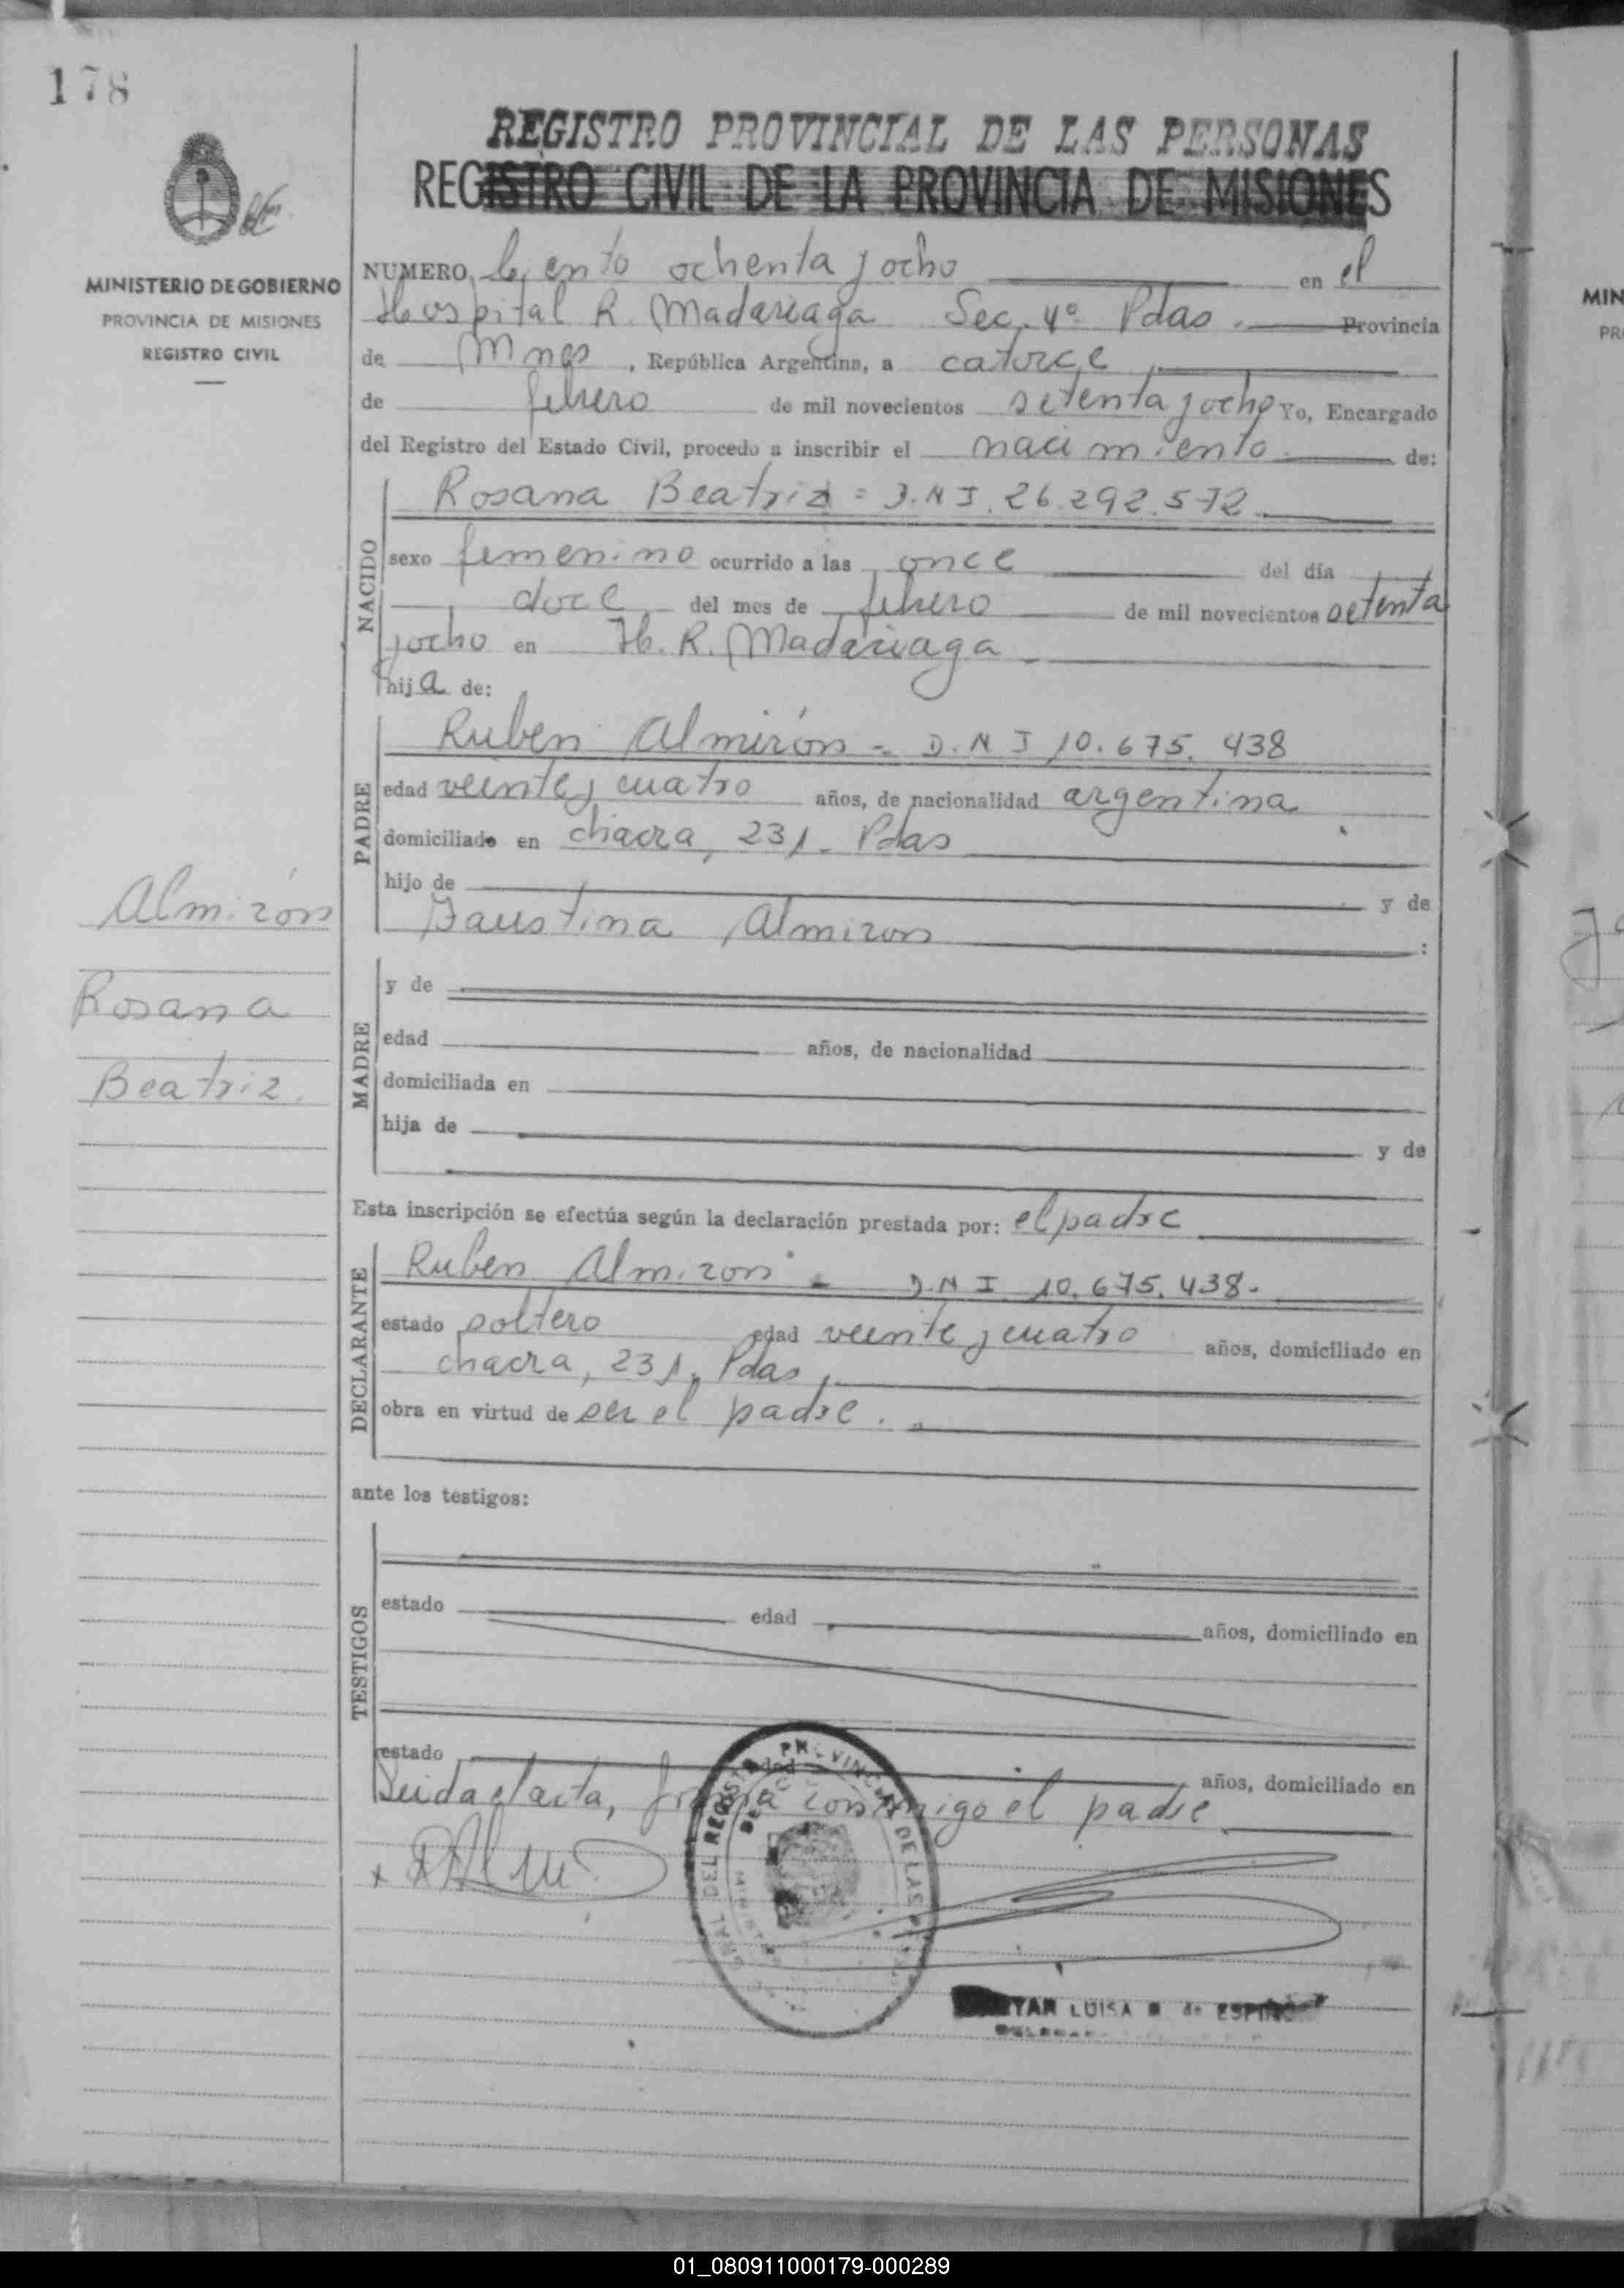 178
REGISTRO PROVINCIAL DE LAS PERSONAS
REGISTRO CIVIL DE LA PROVINCIA DE MISIONES
MINISTERIO DE GOBIERNO
PROVINCIA DE MISIONES
REGISTRO CIVIL
NUMERO Ciento ochenta y ocho en el
Hospital R. Madariaga Sec. 4º Pdas. Provincia
de Mnes, República Argentina, a catorce
de febrero de mil novecientos setenta y ocho Yo, Encargado
del Registro del Estado Civil, procedo a inscribir el nacimiento de:
NACIDO
Rosana Beatriz = D.N.I. 26.292.572
sexo femenino ocurrido a las once del día
doce del mes de febrero de mil novecientos setenta
y ocho en H. R. Madariaga
hija de:
PADRE
Ruben Almirón = D.N.I 10.675.438
edad veinte y cuatro años, de nacionalidad argentina
domiciliado en chacra, 231. Pdas
hijo de y de
Faustina Almiron :
Almirón
Rosana
Beatriz.
MADRE
y de
edad años, de nacionalidad
domiciliada en
hija de y de
Esta inscripción se efectúa según la declaración prestada por: el padre
DECLARANTE
Ruben Almiron = D.N I 10.675.438.
estado soltero edad veinte y cuatro años, domiciliado en
chacra, 231. Pdas
obra en virtud de ser el padre.
ante los testigos:
TESTIGOS
estado edad años, domiciliado en
estado edad años, domiciliado en
Leida el acta, firma conmigo el padre
DEL REGISTRO PROVINCIAL DE LAS
LUISA de
01_080911000179-000289